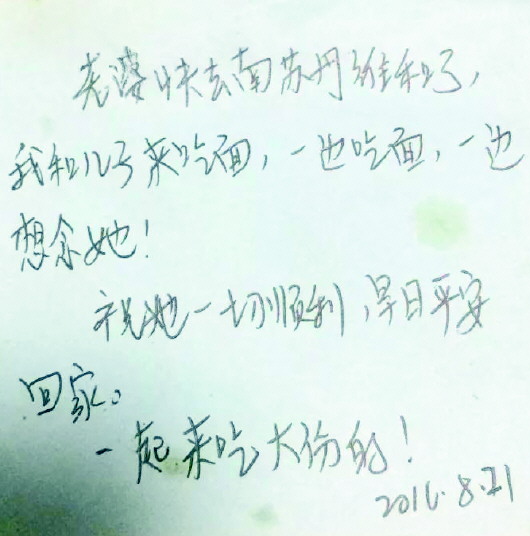 老婆快去南苏丹维和了，
我和儿子来吃面，一边吃面，一边
想念她！
祝她一切顺利，早日平安
回家。
一起来吃大份的！
2016.8.21